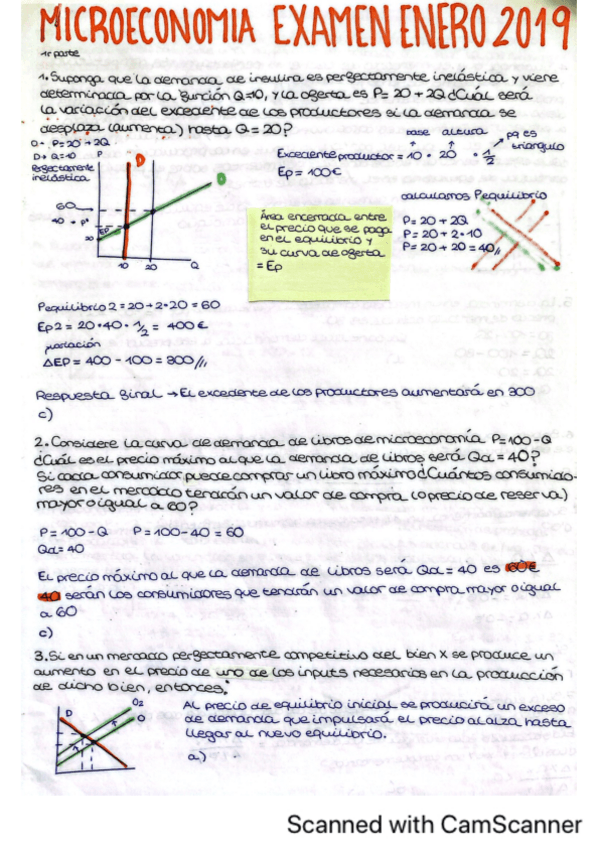 MICROECONOMIA EXAMEN ENERO 2019
1r parte
1. Suponga que la demanda de insulina es perfectamente inelástica y viene
determinada por la función Q=10, y la oferta es P= 20 + 2Q ¿Cuál será
la variación del excedente de los productores si la demanda se
desplaza (aumenta) hasta Q = 20?
O = P= 20 + 2Q
D = Q=10
Perfectamente
inelástica
P
D
O
60
40 = P*
20
EP
10
20
Q
base altura pq es
triangulo
Excedente productor = 10 · 20 · 1/2
Ep = 100€
Área encerrada entre
el precio que se paga
en el equilibrio y
su curva de oferta
= Ep
calculamos Pequilibrio
P= 20 + 2Q
P= 20 + 2·10
P= 20 + 20 = 40//
Pequilibrio 2 = 20 + 2·20 = 60
Ep2 = 20·40· 1/2 = 400€
variación
ΔEP = 400 - 100 = 300//
Respuesta final → El excedente de los productores aumentará en 300
c)
2. Considere la curva de demanda de libros de microeconomía P=100-Q
¿Cuál es el precio máximo al que la demanda de libros será Qd = 40?
Si cada consumidor puede comprar un libro máximo ¿Cuántos consumido-
res en el mercado tendrán un valor de compra (o precio de reserva)
mayor o igual a 60?
P= 100 - Q P= 100 - 40 = 60
Qd= 40
El precio máximo al que la demanda de libros será Qd = 40 es 60€
40 serán los consumidores que tendrán un valor de compra mayor o igual
a 60
c)
3. Si en un mercado perfectamente competitivo del bien X se produce un
aumento en el precio de uno de los inputs necesarios en la producción
de dicho bien, entonces:
D
O2
O
Al precio de equilibrio inicial se producirá un exceso
de demanda que impulsará el precio al alza hasta
llegar al nuevo equilibrio.
a)
Scanned with CamScanner